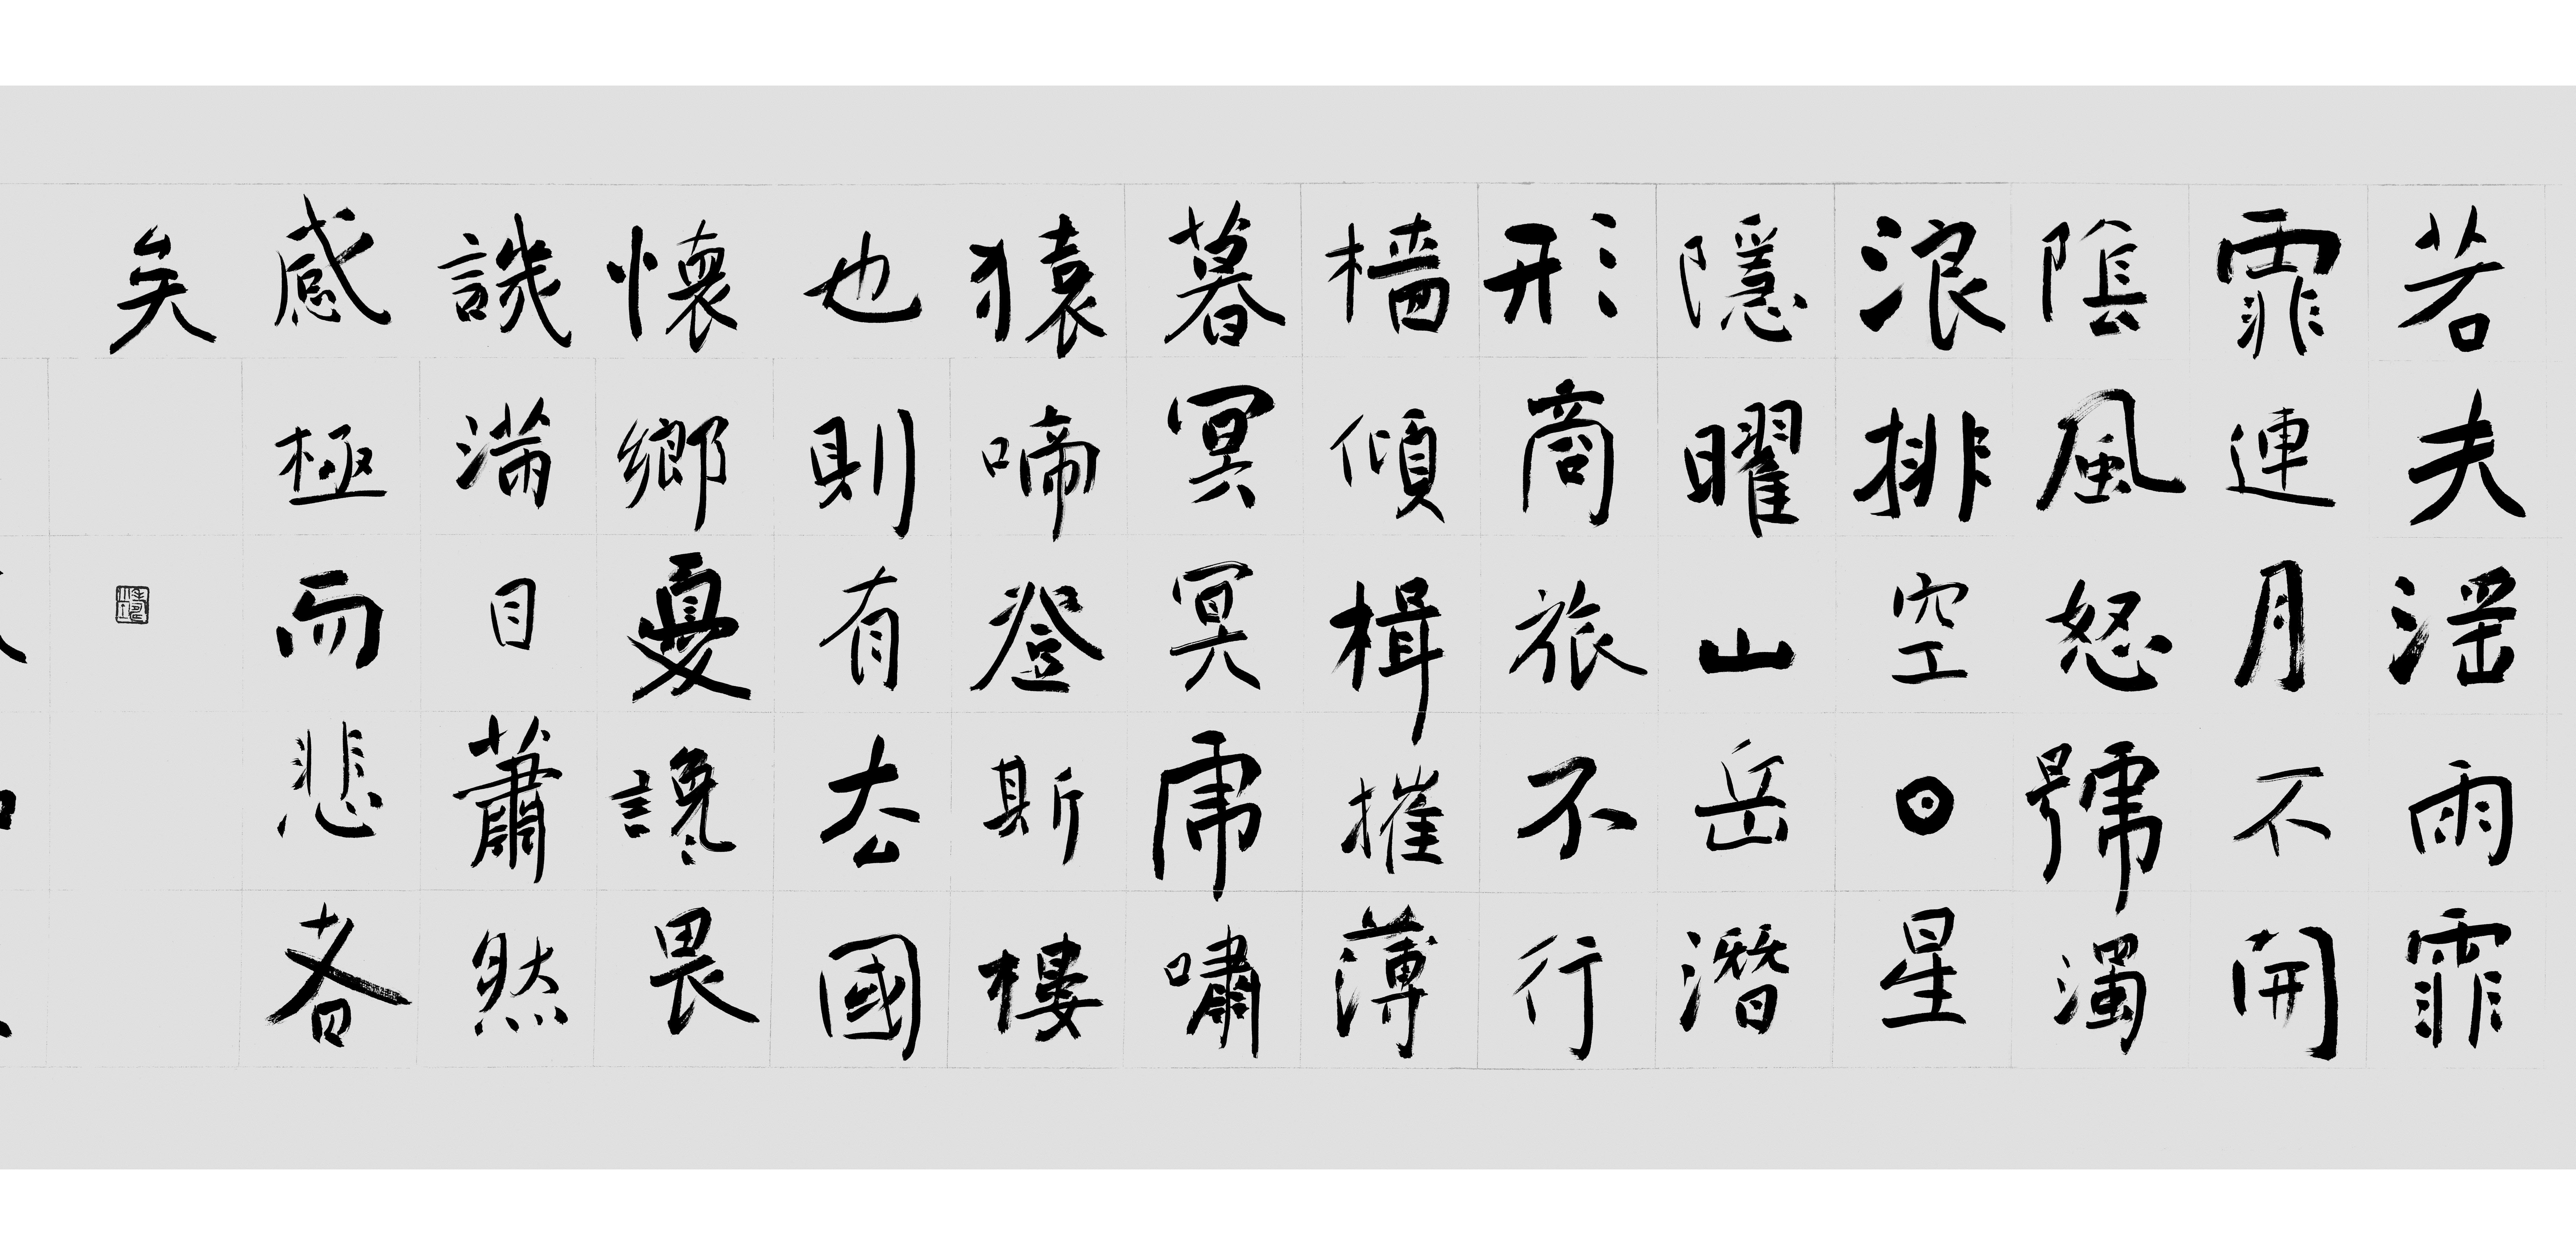 若夫滛雨霏
霏連月不開
陰風怒號濁
浪排空日星
隱曜山岳潛
形商旅不行
檣傾楫摧薄
暮冥冥虎嘯
猿啼登斯樓
也則有去國
懷鄉憂讒畏
譏滿目蕭然
感極而悲者
矣